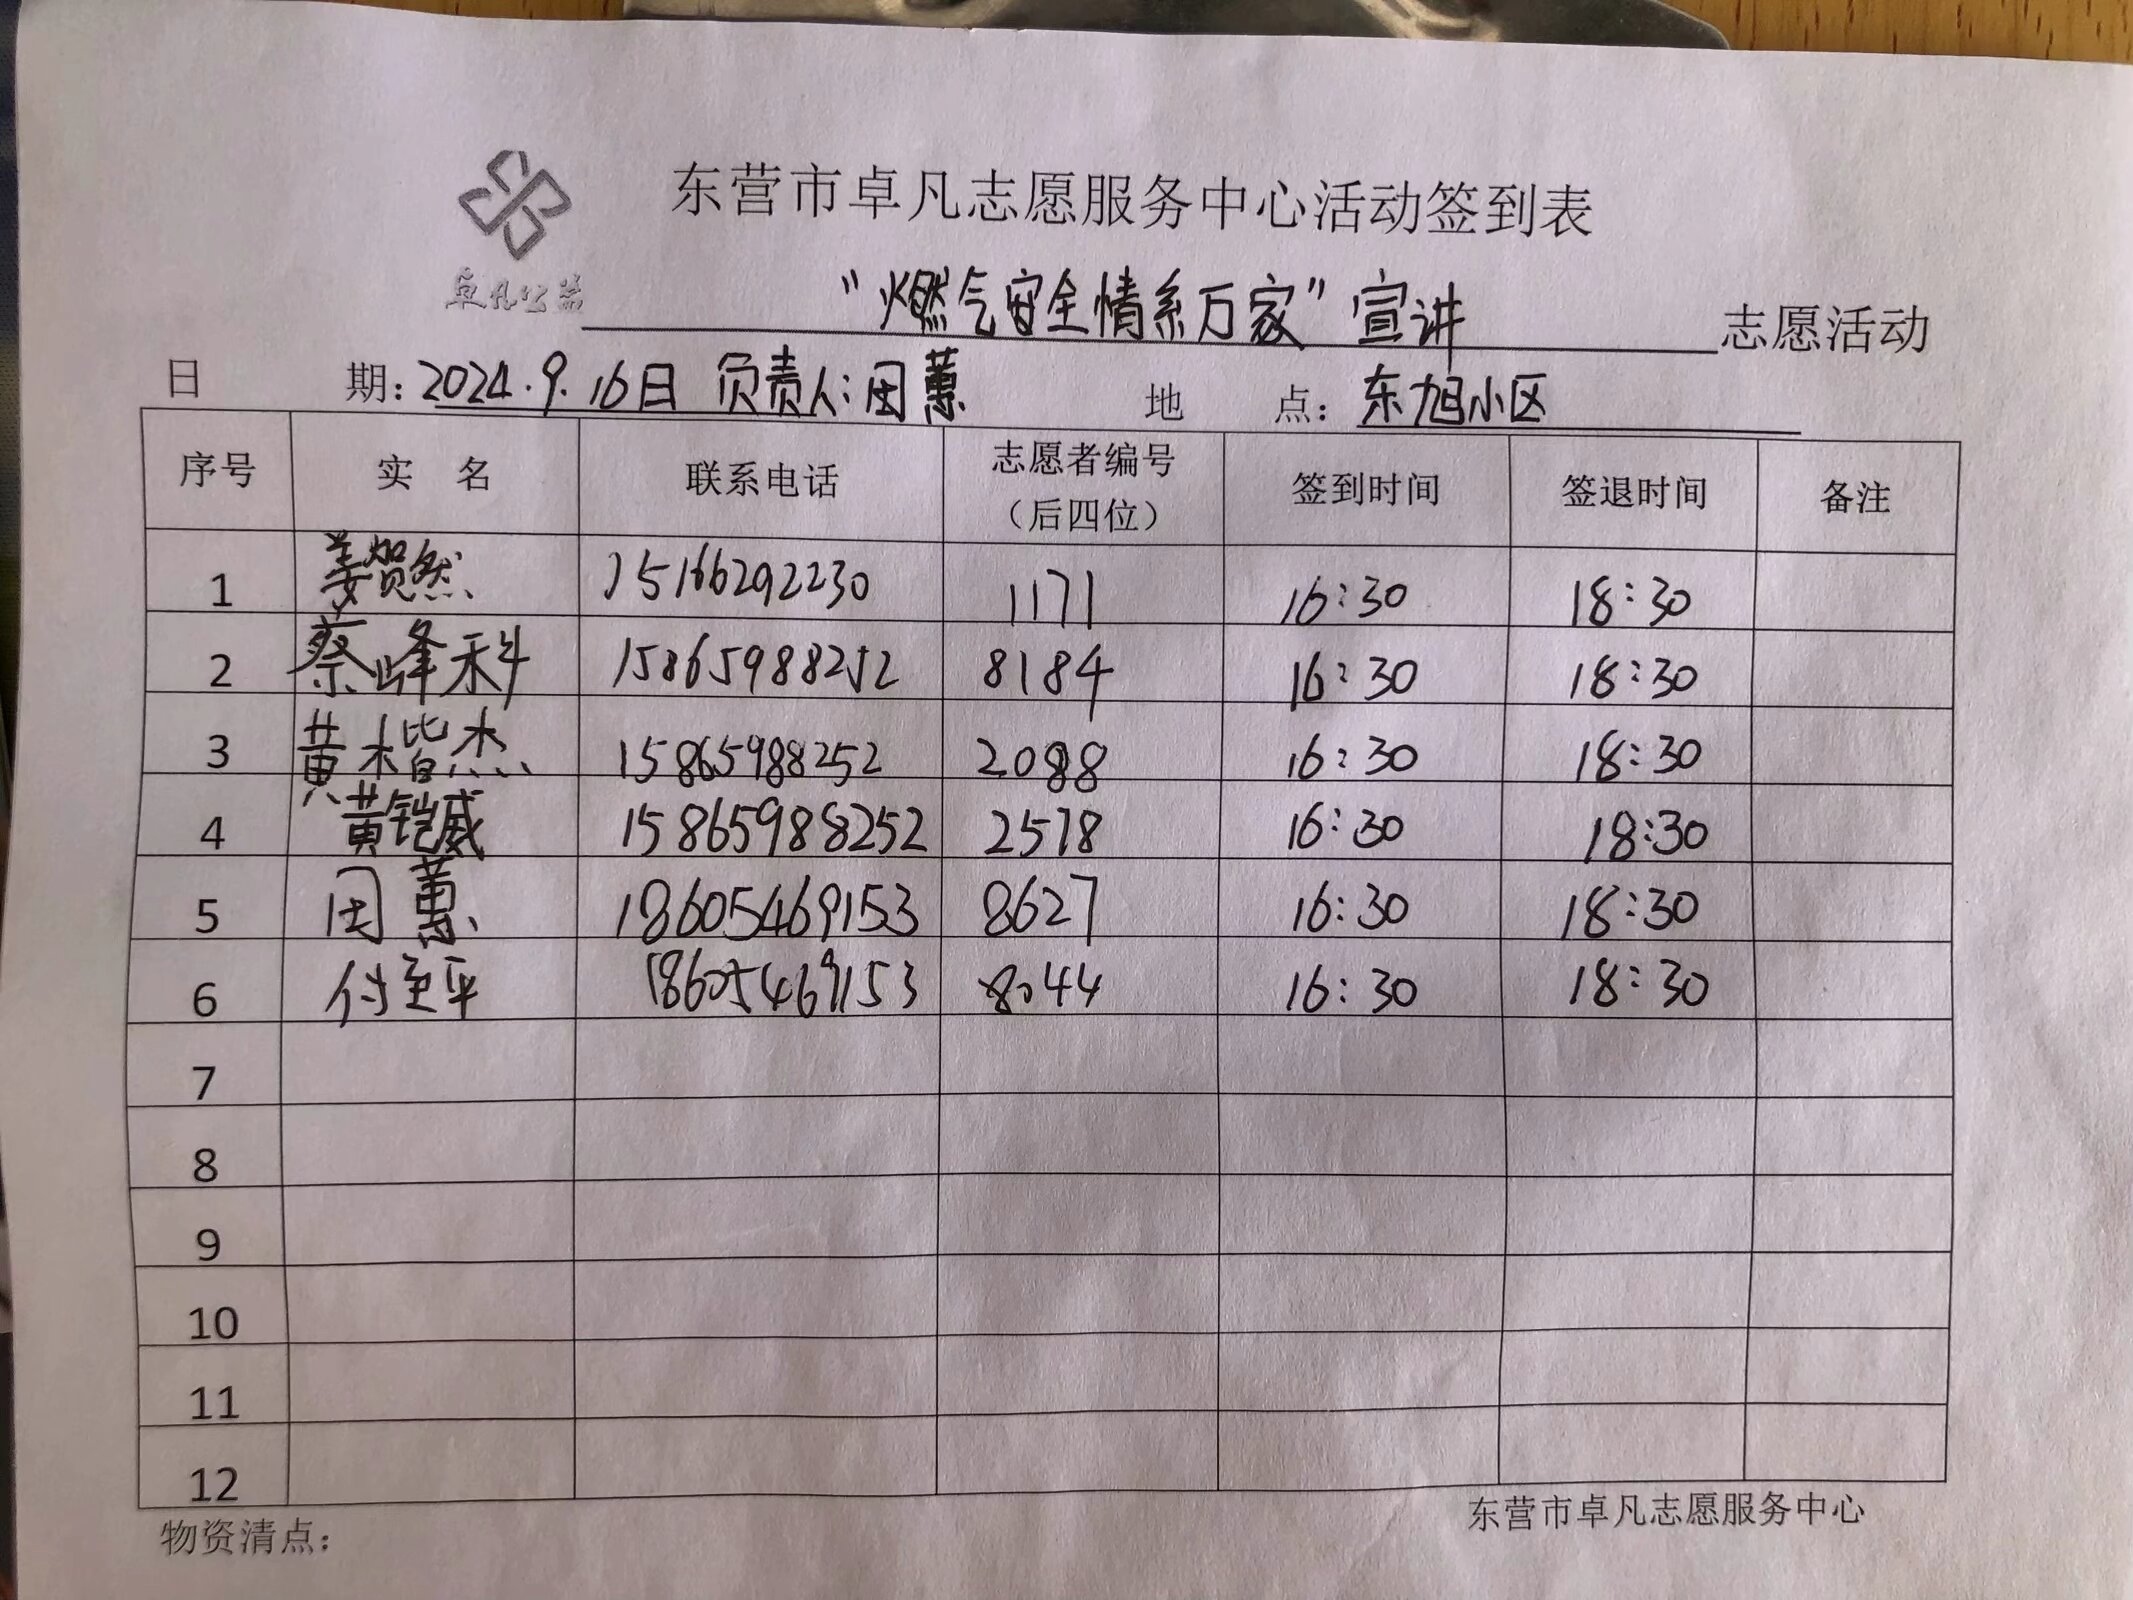 东营市卓凡志愿服务中心活动签到表
卓凡公益
“燃气安全情系万家”宣讲 志愿活动
日 期：2024.9.16日 负责人：田蕙 地 点：东旭小区
序号 实 名 联系电话 志愿者编号（后四位） 签到时间 签退时间 备注
1 姜贺然 15166292230 1171 16:30 18:30
2 蔡峰科 15865988252 8184 16:30 18:30
3 黄楷杰 15865988252 2088 16:30 18:30
4 黄铠威 15865988252 2578 16:30 18:30
5 田蕙 18605469153 8627 16:30 18:30
6 18605469153 8044 16:30 18:30
7
8
9
10
11
12
物资清点： 东营市卓凡志愿服务中心